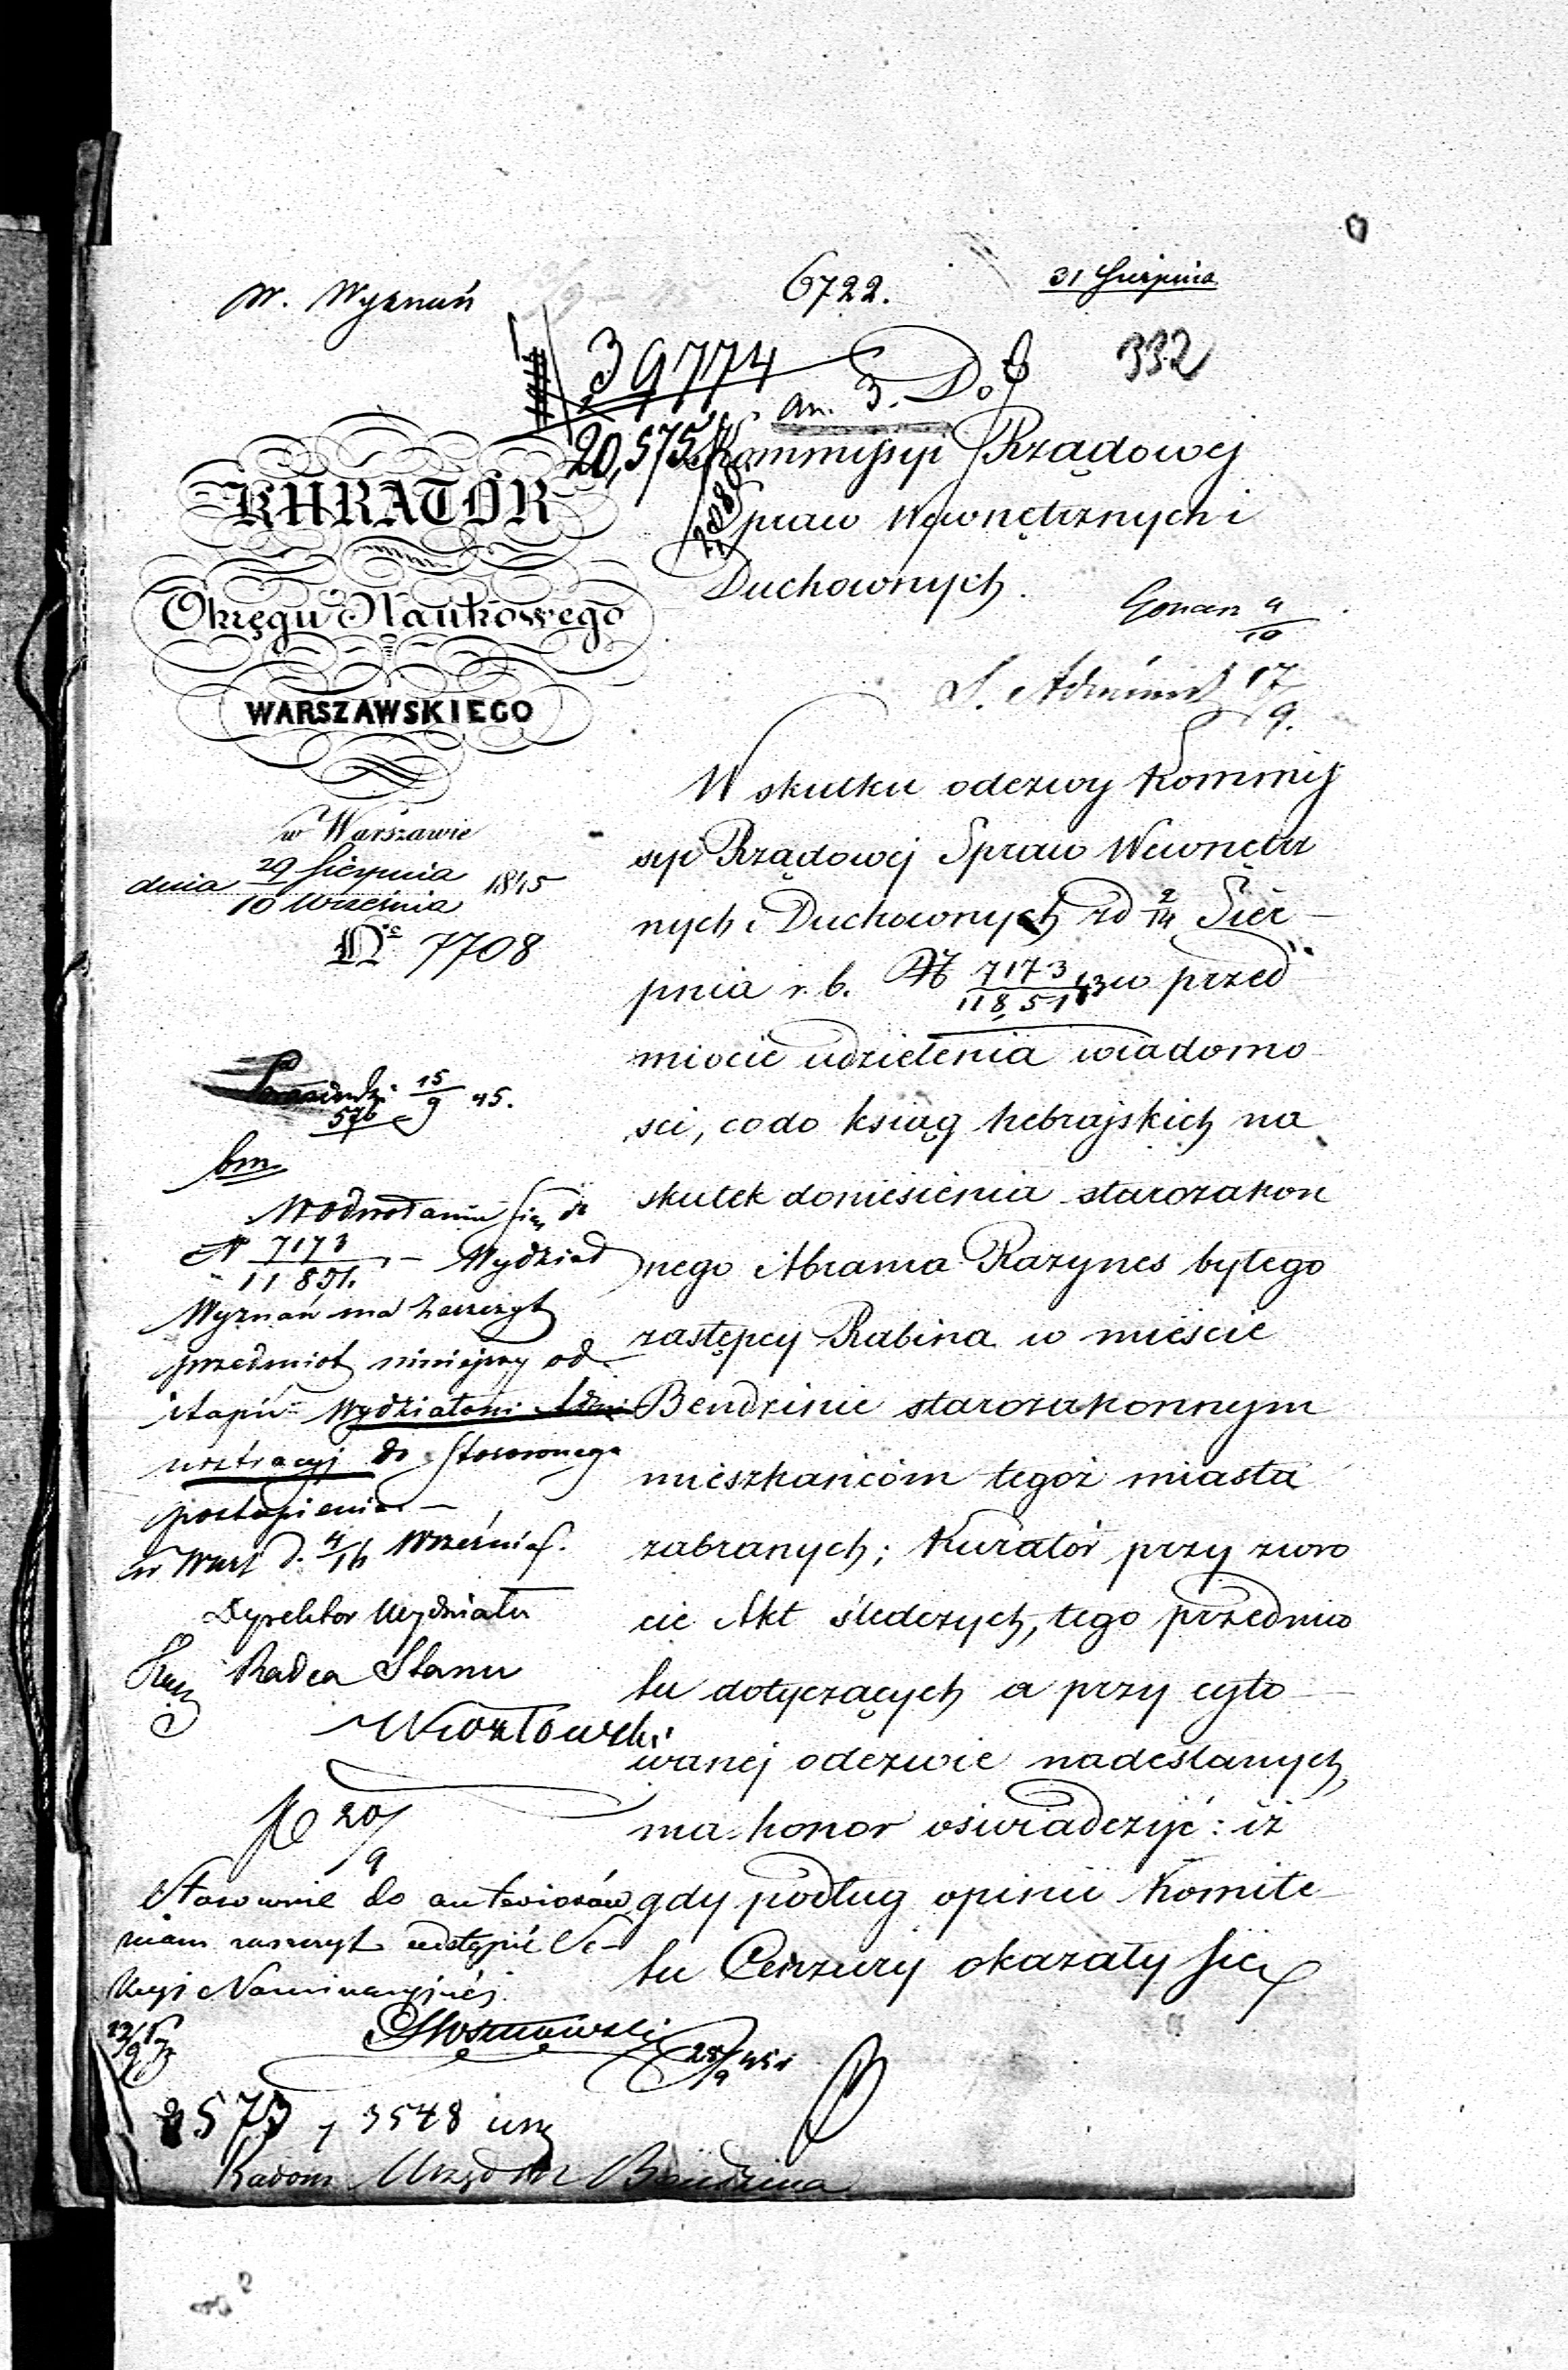 W. Wyznań
6722.
31 Sierpnia
39774
332
an. 3. Do
20,575
Kommissyi Rządowej
Spraw Wewnętrznych i
Duchownych.
KURATOR
Okręgu Naukowego
WARSZAWSKIEGO
w Warszawie
dnia 29 Sierpnia / 10 Września 1845
No 7708
4/10
17/9.
W skutku odezwy Kommis
syi Rządowej Spraw Wewnętrz
nych i Duchownych zd 2/14 Sier-
pnia r. b. N 7173/11851 w przed
miocie udzielenia wiadomo
ści, co do ksiąg hebrajskich na
skutek doniesienia starozakon
nego Abrama Razynes byłego
zastępcy Rabina w mieście
Bendzinie starozakonnym
mieszkańcóm tegoż miasta
zabranych; Kurator przy zwro
cie Akt śledczych, tego przedmio
tu dotyczących a przy cyto-
wanej odezwie nadesłanych,
ma honor oświadczyć: iż
gdy podług opinii Komite
tu Cenzury okazały się
15/9 45.
570
bm
W odwołaniu się do
N 7173/11851. - Wydział
Wyznań ma zaszczyt
przedmiot niniejszy od-
stąpić Wydziałowi Admi
nistracyj do stosownego
postąpienia. -
w Warsz d. 4/16 Września
Dyrektor Wydziału
Radca Stanu
20/9
Stosownie do anterioraów
mam zaszczyt odstąpić Se-
kcyi
28/9 45
573, 3548
Radom Urząd M Bendzina